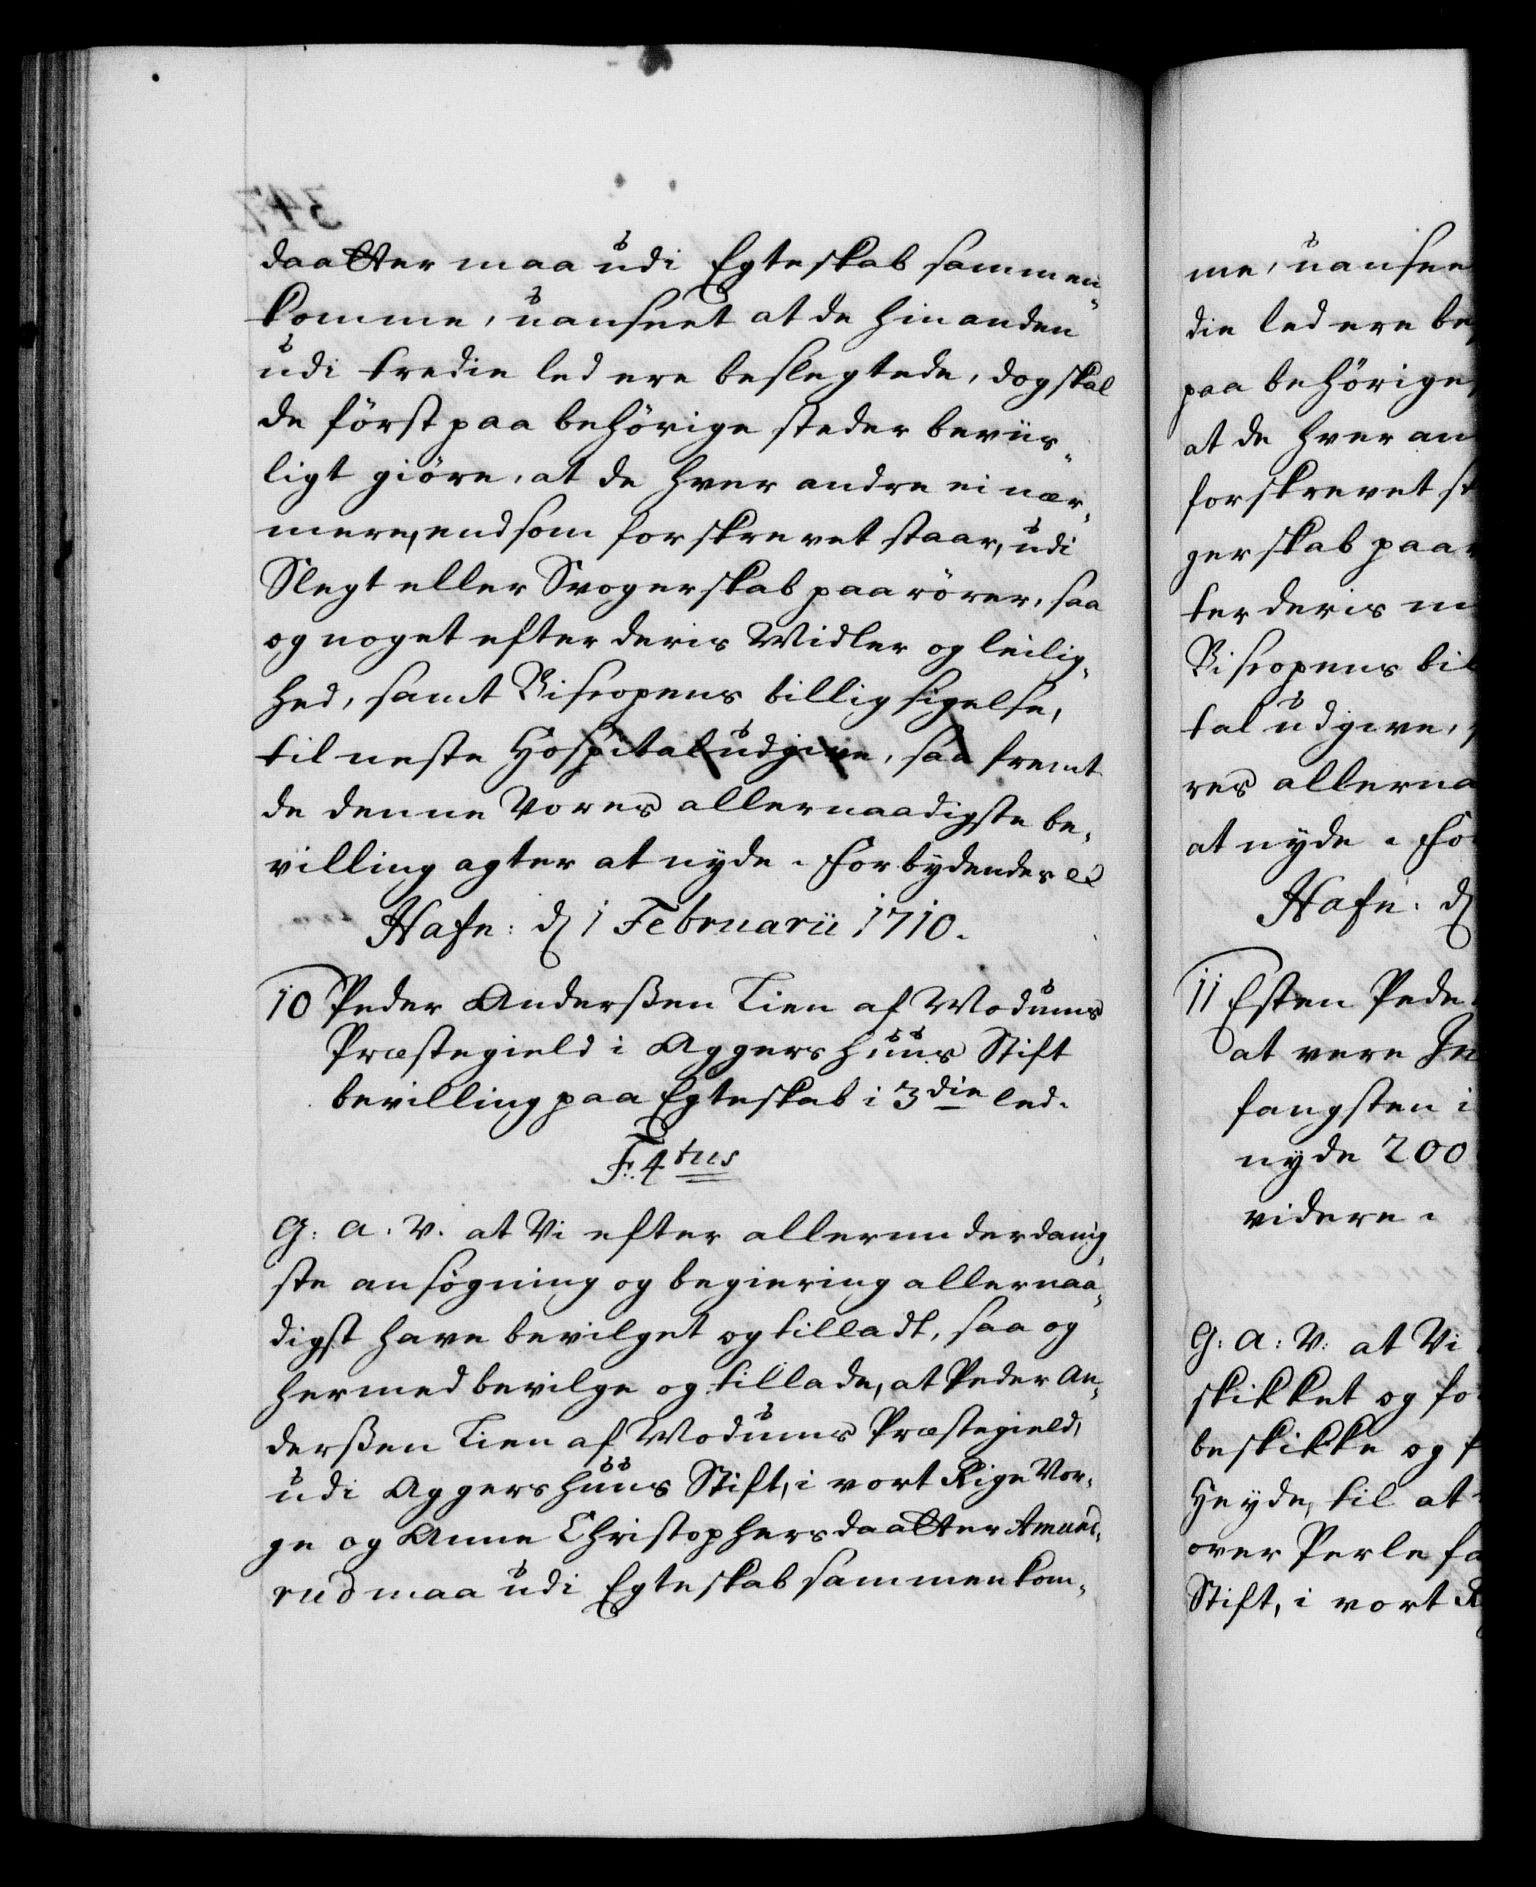 daatter maa udi Egteskab sammen-
komme, uanseet at de hinanden
udi tredie led ere beslegtede, dog skal
de först paa behörige steder beviis-
ligt giöre, at de hver andre ei nær-
mere, end som forskrevet staar, udi
Slegt eller Svogerskab paarörer, saa
og noget efter deris Midler og leilig-
hed, samt Biscopens billigsigelse,
til neste Hospital udgive, saa fremt
de denne Vores allernaadigste be-
villing agter at nyde. Forbydendes
Hafn: d 1 Februarii 1710.
10 Peder Anderßen Lien af Modums
Præstegield i Aggershuus Stift
bevilling paa Egteskab i 3die led.
F: 4tus
G: A: V. at Vi efter allerunderdanig-
ste ansögning og begiering allernaa-
digst have bevilget og tilladt, saa og
hermed bevilge og tillade, at Peder An-
derßen Lien af Modums Præstegield,
udi Aggershuus Stift, i vort Rige Nor-
ge og Anne Christophersdaatter Amund-
rud maa udi Egteskab sammenkom-
me, uansee
die led ere be
paa behörige
at de hver an
forskrevet st
gerskab paar
ter deris m
Biscopens bil
tal udgive,
res allerna
at nyde. For
Hafn: d
11 Esten Pede
at vere In
fangsten i
nyde 200
videre.
G: A: V: at Vi
skikket og fo
beskikke og f
Heyde, til at
over Perle fa
Stift, i vort R